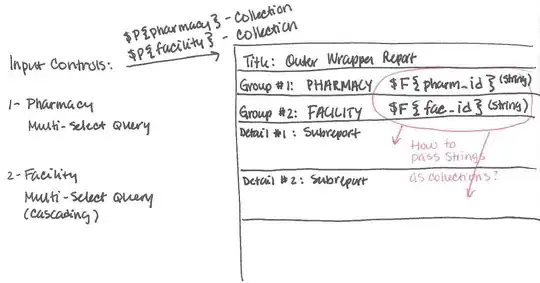 $P{pharmacy} - Collection
$P{facility} - Collection
Input Controls:
1- Pharmacy
Multi-Select Query
2- Facility
Multi-Select Query
(cascading)
Title: Outer Wrapper Report
Group #1: PHARMACY $F{pharm_id} (string)
Group #2: FACILITY $F{fac_id} (string)
Detail #1: Subreport
How to
pass strings
as collections?
Detail #2: Subreport